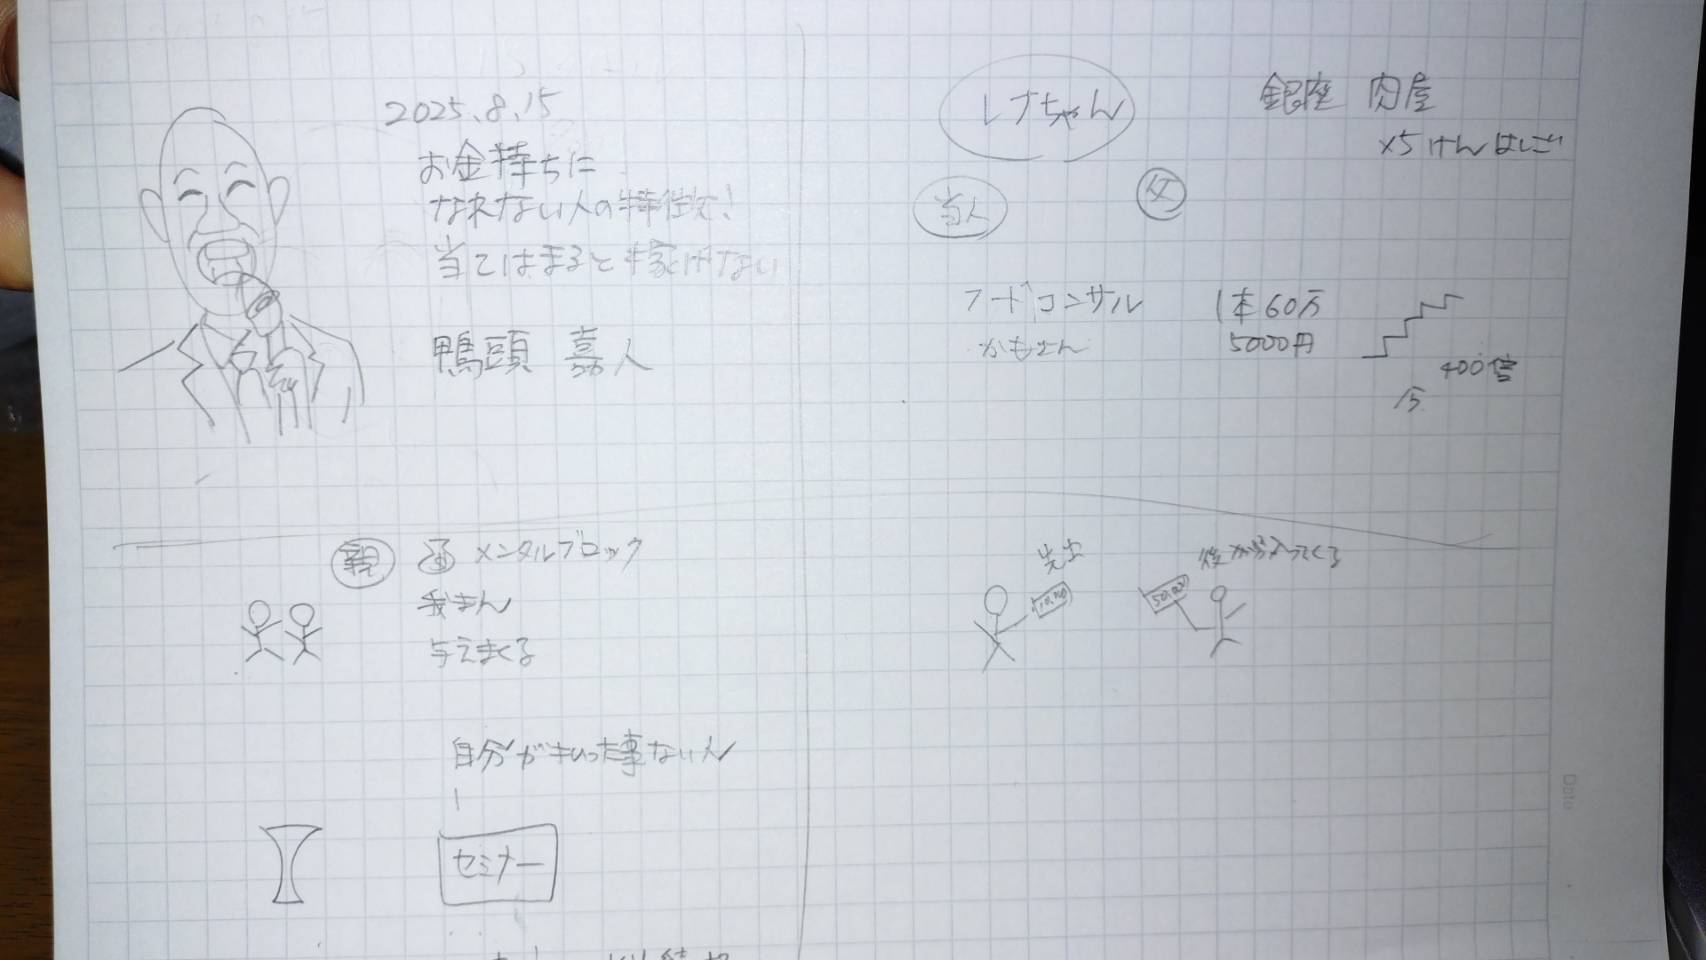 2025.8.15
お金持ちに
なれない人の特徴!
当てはまると稼げない
鴨頭 嘉人
しげちゃん
銀座 肉屋
×5けんはしご
当人
父
フードコンサル 1本60万
かもさん 5000円
400倍
15
親 メンタルブロック
我まん
与えまくる
自分がもらった事ない人
セミナー
先出
10,000
後から入ってくる
50,000
Date